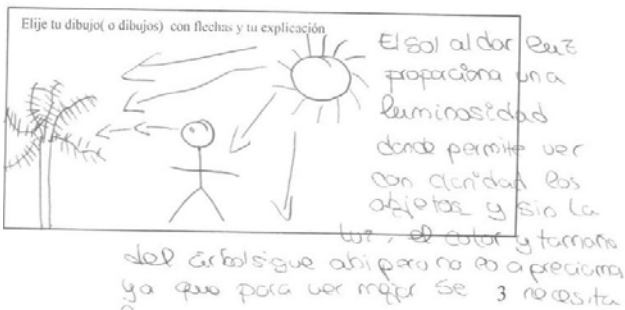 Elije tu dibujo( o dibujos) con flechas y tu explicación
El sol al dar luz
proporciona una
luminosidad
donde permite ver
con claridad los
objetos y sin la
luz, el color y tamaño
del árbol sigue ahi pero no lo apreciamo
ya que para ver mejor se 3 necesita